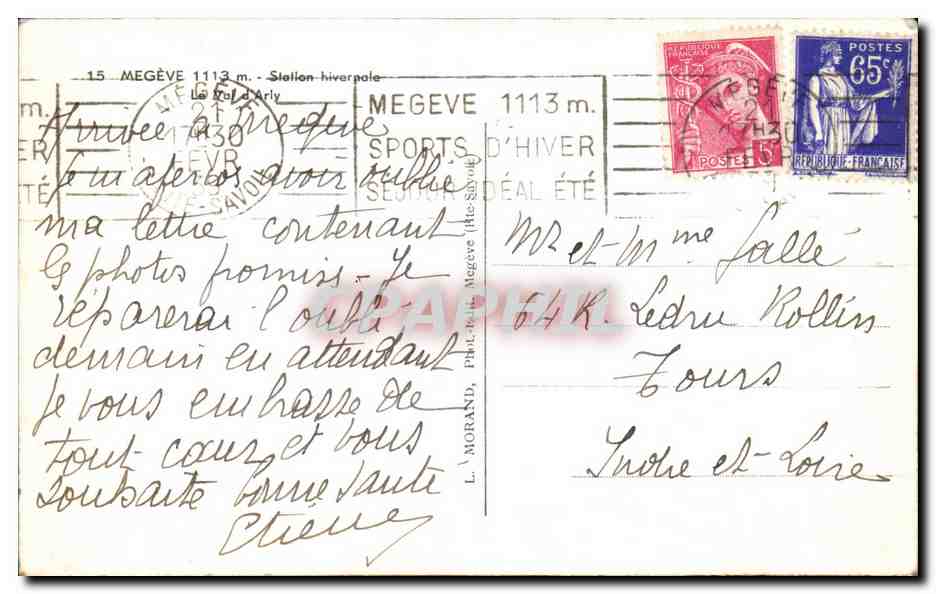 15 MEGÈVE 1113 m. - Station hivernale
Le Val d'Arly
MEGÈVE
21
17H30
FEVR
HTE-SAVOIE
MEGEVE 1113 m.
SPORTS D'HIVER
SEJOUR IDÉAL ÉTÉ
m.
ER
ÉTÉ
RÉPUBLIQUE FRANÇAISE
POSTES
5
POSTES
65c
RÉPUBLIQUE FRANÇAISE
Arrivée à Megève
Je m'aperçois avoir oublié
ma lettre contenant
les photos promise. Je
réparerai l'oubli
demain en attendant
Je vous embrasse de
tout cœur et vous
souhaite bonne santé
Etienne
L. MORAND, Phot.-Edit. Megève (Hte-Savoie)
Mr et Mme Gallé
64 R. Ledru Rollin
Tours
Indre et-Loire
CPAPHIL